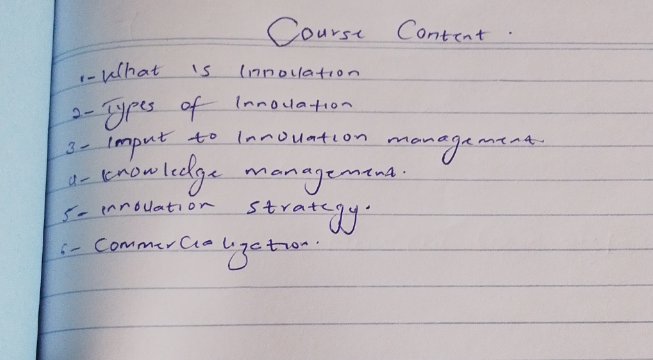 Course Content.
1- What is Innovation
2- Types of Innovation
3- Imput to Innovation management.
4- Knowledge management.
5- innovation strategy.
6- Commercialization.